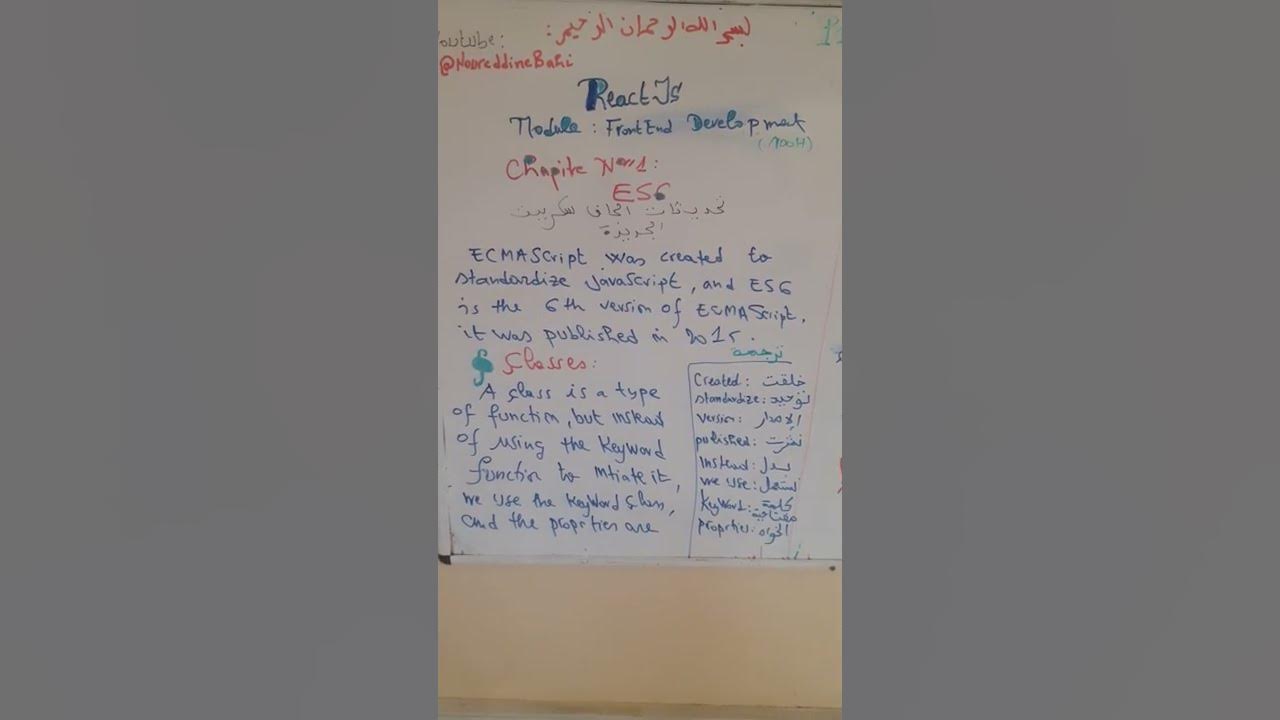 بسم الله الرحمان الرحيم:
outube:
@NoureddineBahi
ReactJs
Module : FrontEnd Development
(100H)
Chapitre N°1:
ES6
تحديثات الجافا سكريبت
الجديدة
ECMAScript was created to
standardize JavaScript, and ES6
is the 6th version of ECMAScript,
it was published in 2015.
Classes:
A class is a type
of function, but instead
of using the keyword
function to intiate it,
we use the keyword class,
and the proprties are
ترجمة
Created: خلقت
standardize: توحيد
version: الإصدار
published: نشرت
Instead: بدل
we use: نستعمل
keyword: كلمة مفتاحية
proprties: